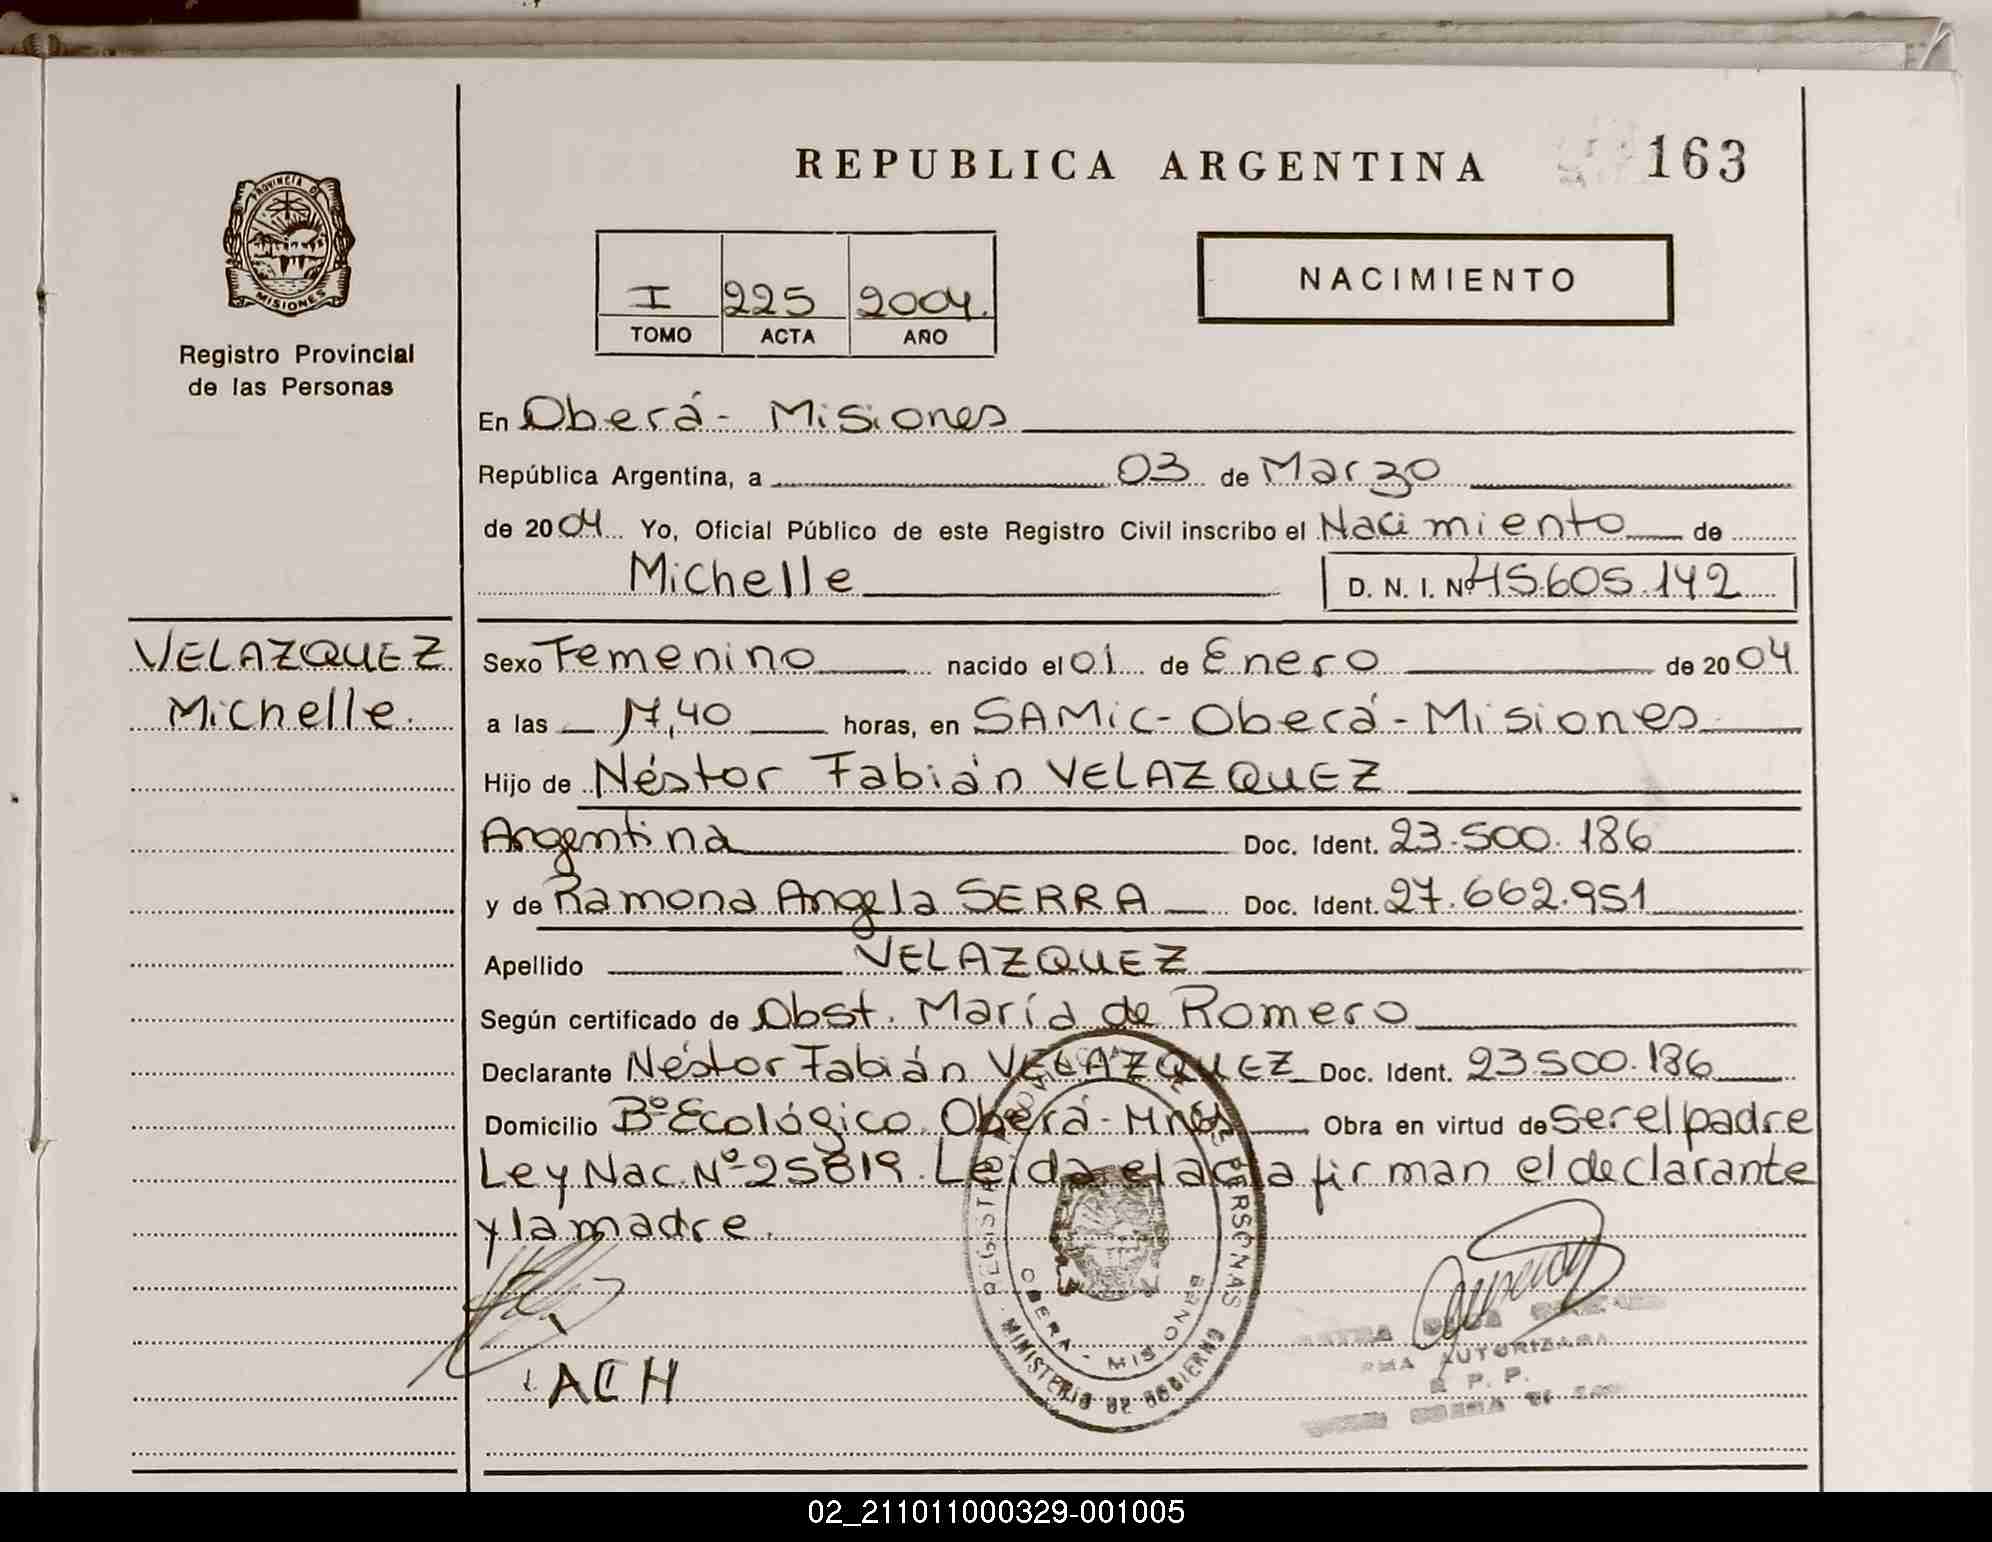 REPUBLICA ARGENTINA
163
PROVINCIA D
MISIONES
Registro Provincial
de las Personas
I 225 2004.
TOMO ACTA AÑO
NACIMIENTO
En Oberá - Misiones
República Argentina, a 03 de Marzo
de 2004 Yo, Oficial Público de este Registro Civil inscribo el Nacimiento de
Michelle D. N. I. Nº 45.605.142
VELAZQUEZ
Michelle.
Sexo Femenino nacido el 01 de Enero de 2004
a las 17,40 horas, en SAMiC - Oberá - Misiones
Hijo de Néstor Fabián VELAZQUEZ
Argentina Doc. Ident. 23.500.186
y de Ramona Angela SERRA Doc. Ident. 27.662.951
Apellido VELAZQUEZ
Según certificado de Obst. María de Romero
Declarante Néstor Fabián VELAZQUEZ Doc. Ident. 23500.186
Domicilio Bº Ecológico. Oberá - Mnes Obra en virtud de ser el padre
Ley Nac. Nº 25819. Leida el acta firman el declarante
y la madre.
ACH
PERSONAS
OBERA - MISIONES
MINISTERIO DE GOBIERNO
AUTORIZADA
P. P.
02_211011000329-001005